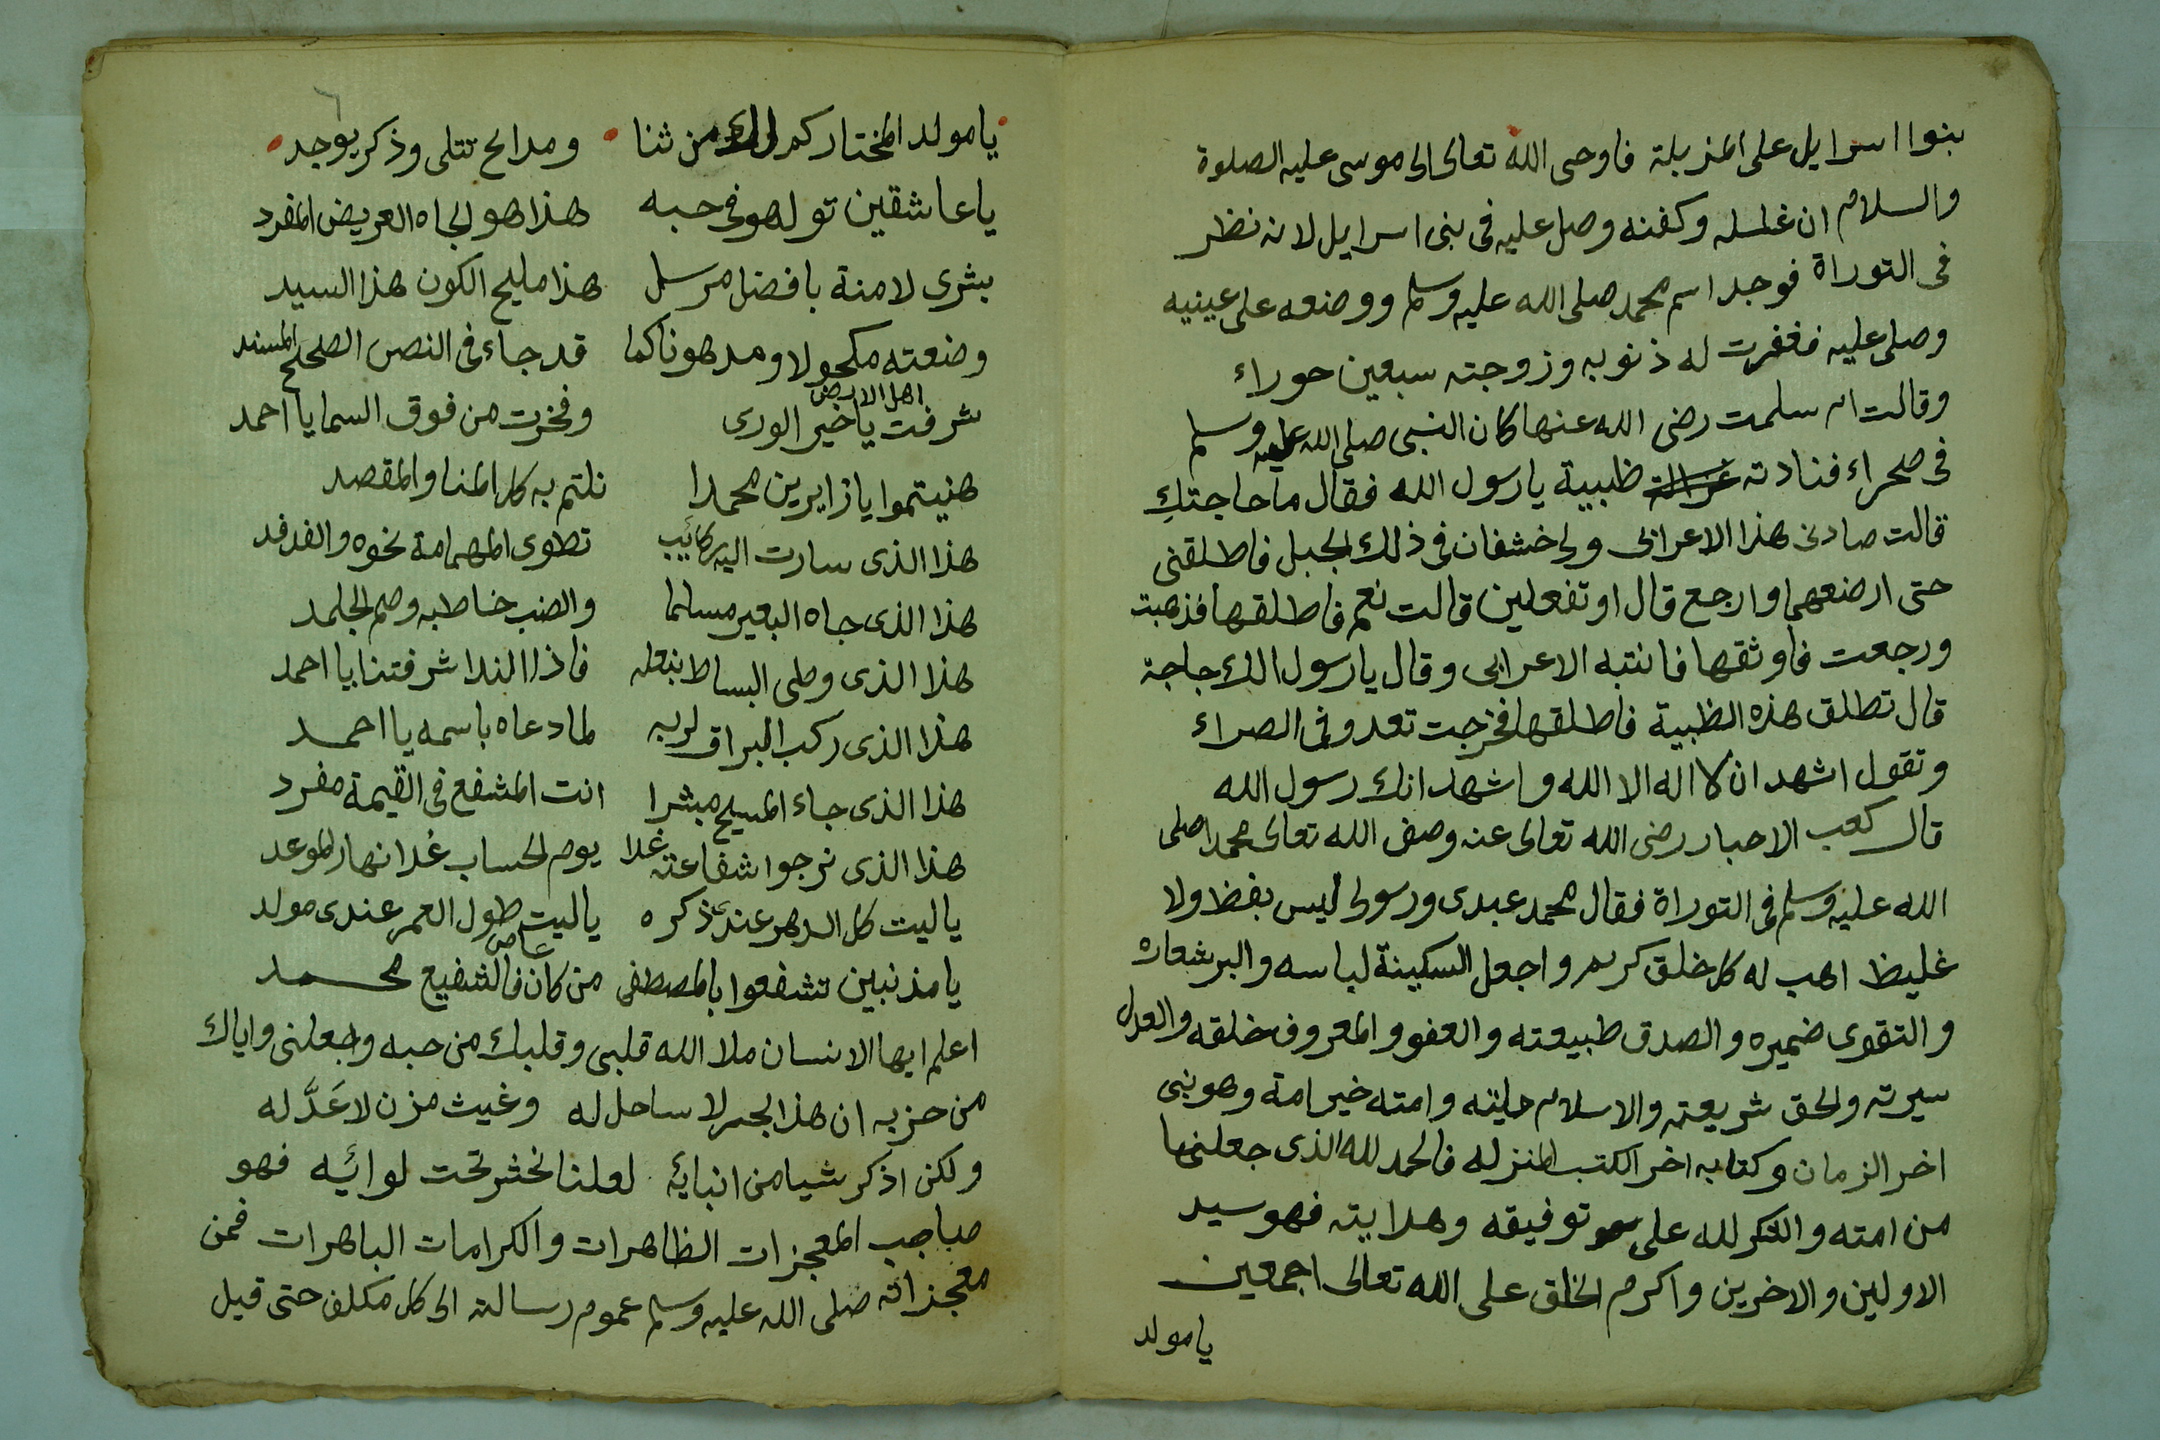 بنوا اسرايل على المزبلة فاوحى الله تعالى الى موسى عليه الصلوة
والسلام ان غسله وكفنه وصل عليه فى بنى اسرايل لانه نظر
فى التوراة فوجد اسم محمد صلى الله عليه وسلم ووضعه على عينيه
وصلى عليه فغفرت له ذنوبه وزوجته سبعين حوراء
وقالت ام سلمت رضى الله عنها كان النبى صلى الله عليه وسلم
فى صحراء فنادته ظبية يا رسول الله فقال ما حاجتك
قالت صادنى هذا الاعرابى ولى خشفان فى ذلك الجبل فاطلقنى
حتى ارضعهما وارجع قال او تفعلين قالت نعم فاطلقها فذهبت
ورجعت فاوثقها فانتبه الاعرابى وقال يا رسول الك حاجة
قال تطلق هذه الظبية فاطلقها فخرجت تعدو فى الصراء
وتقول اشهد ان لا اله الا الله واشهد انك رسول الله
قال كعب الاحبار رضى الله تعالى عنه وصف الله تعالى محمدا صلى
الله عليه وسلم فى التوراة فقال محمد عبدى ورسولى ليس بفظ ولا
غليظ اهب له كل خلق كريم واجعل السكينة لباسه والبر شعاره
والتقوى ضميره والصدق طبيعته والعفو والمعروف خلقه والعدل
سيرته والحق شريعته والاسلام مليته وامته خير امة وهو نبى
اخر الزمان وكتابه اخر الكتب المنزله فالحمد لله الذى جعلنا
من امته والشكر لله على توفيقه وهدايته فهو سيد
الاولين والاخرين واكرم الخلق على الله تعالى اجمعين
يا مولد
يا مولد المختار كم لك من ثنا ومدايح تتلى وذكر يوجد
يا عاشقين تولهو فى حبه هذا هو الجاه العريض المفرد
بشرى لامنة بافضل مرسل هذا مليح الكون هذا السيد
وضعته مكحولا ومدهونا كما قد جاء فى النص الصحيح المسند
شرفت اهل الارض يا خير الورى وفخرت من فوق السما يا احمد
هنيتموا يا زايرين محمدا نلتم به كل المنا والمقصد
هذا الذى سارت اليه ركائب تطوى المهامة نحوه والفدفد
هذا الذى جاه البعير مسلما والضب خاطبه وصم الجلمد
هذا الذى وطى البساط بنعله فاذا الندا شرفتنا يا احمد
هذا الذى ركب البراق لربه لما دعاه باسمه يا احمد
هذا الذى جاء المسيح مبشرا انت المشفع فى القيمة مفرد
هذا الذى نرجوا شفاعته غدا يوم الحساب غدا نهار الموعد
يا ليت كل الدهر عندى ذكره يا ليت طول العمر عندى مولد
يا مذنبين تشفعوا بالمصطفى من كان عاص فالشفيع محمد
اعلم ايها الانسان ملا الله قلبى وقلبك من حبه وجعلنى واياك
من حزبه ان هذا البحر لا ساحل له وغيث مزن لا عَدَّ له
ولكن اذكر شيا من انبائه لعلنا نحشر تحت لوائه فهو
صاحب المعجزات الظاهرات والكرامات الباهرات فمن
معجزاته صلى الله عليه وسلم عموم رسالته الى كل مكلف حتى قيل